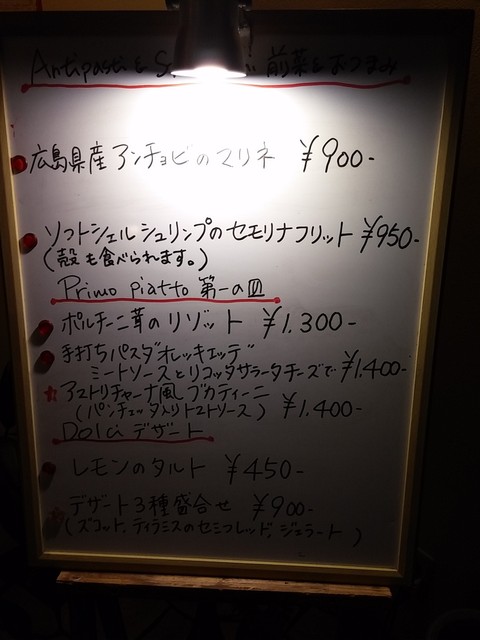 Antipasti & 前菜&おつまみ
広島県産アンチョビのマリネ ¥900-
ソフトシェルシュリンプのセモリナフリット ¥950-
(殻も食べられます。)
Primo piatto 第一の皿
ポルチーニ茸のリゾット ¥1.300-
手打ちパスタオレッキエッテ
ミートソースとリコッタサラータチーズで ¥1.400-
アマトリチャーナ風ブカティーニ
(パンチェッタ入りトマトソース) ¥1.400-
Dolci デザート
レモンのタルト ¥450-
デザート3種盛合せ ¥900-
(ズコット,ティラミスのセミフレッド,ジェラート)